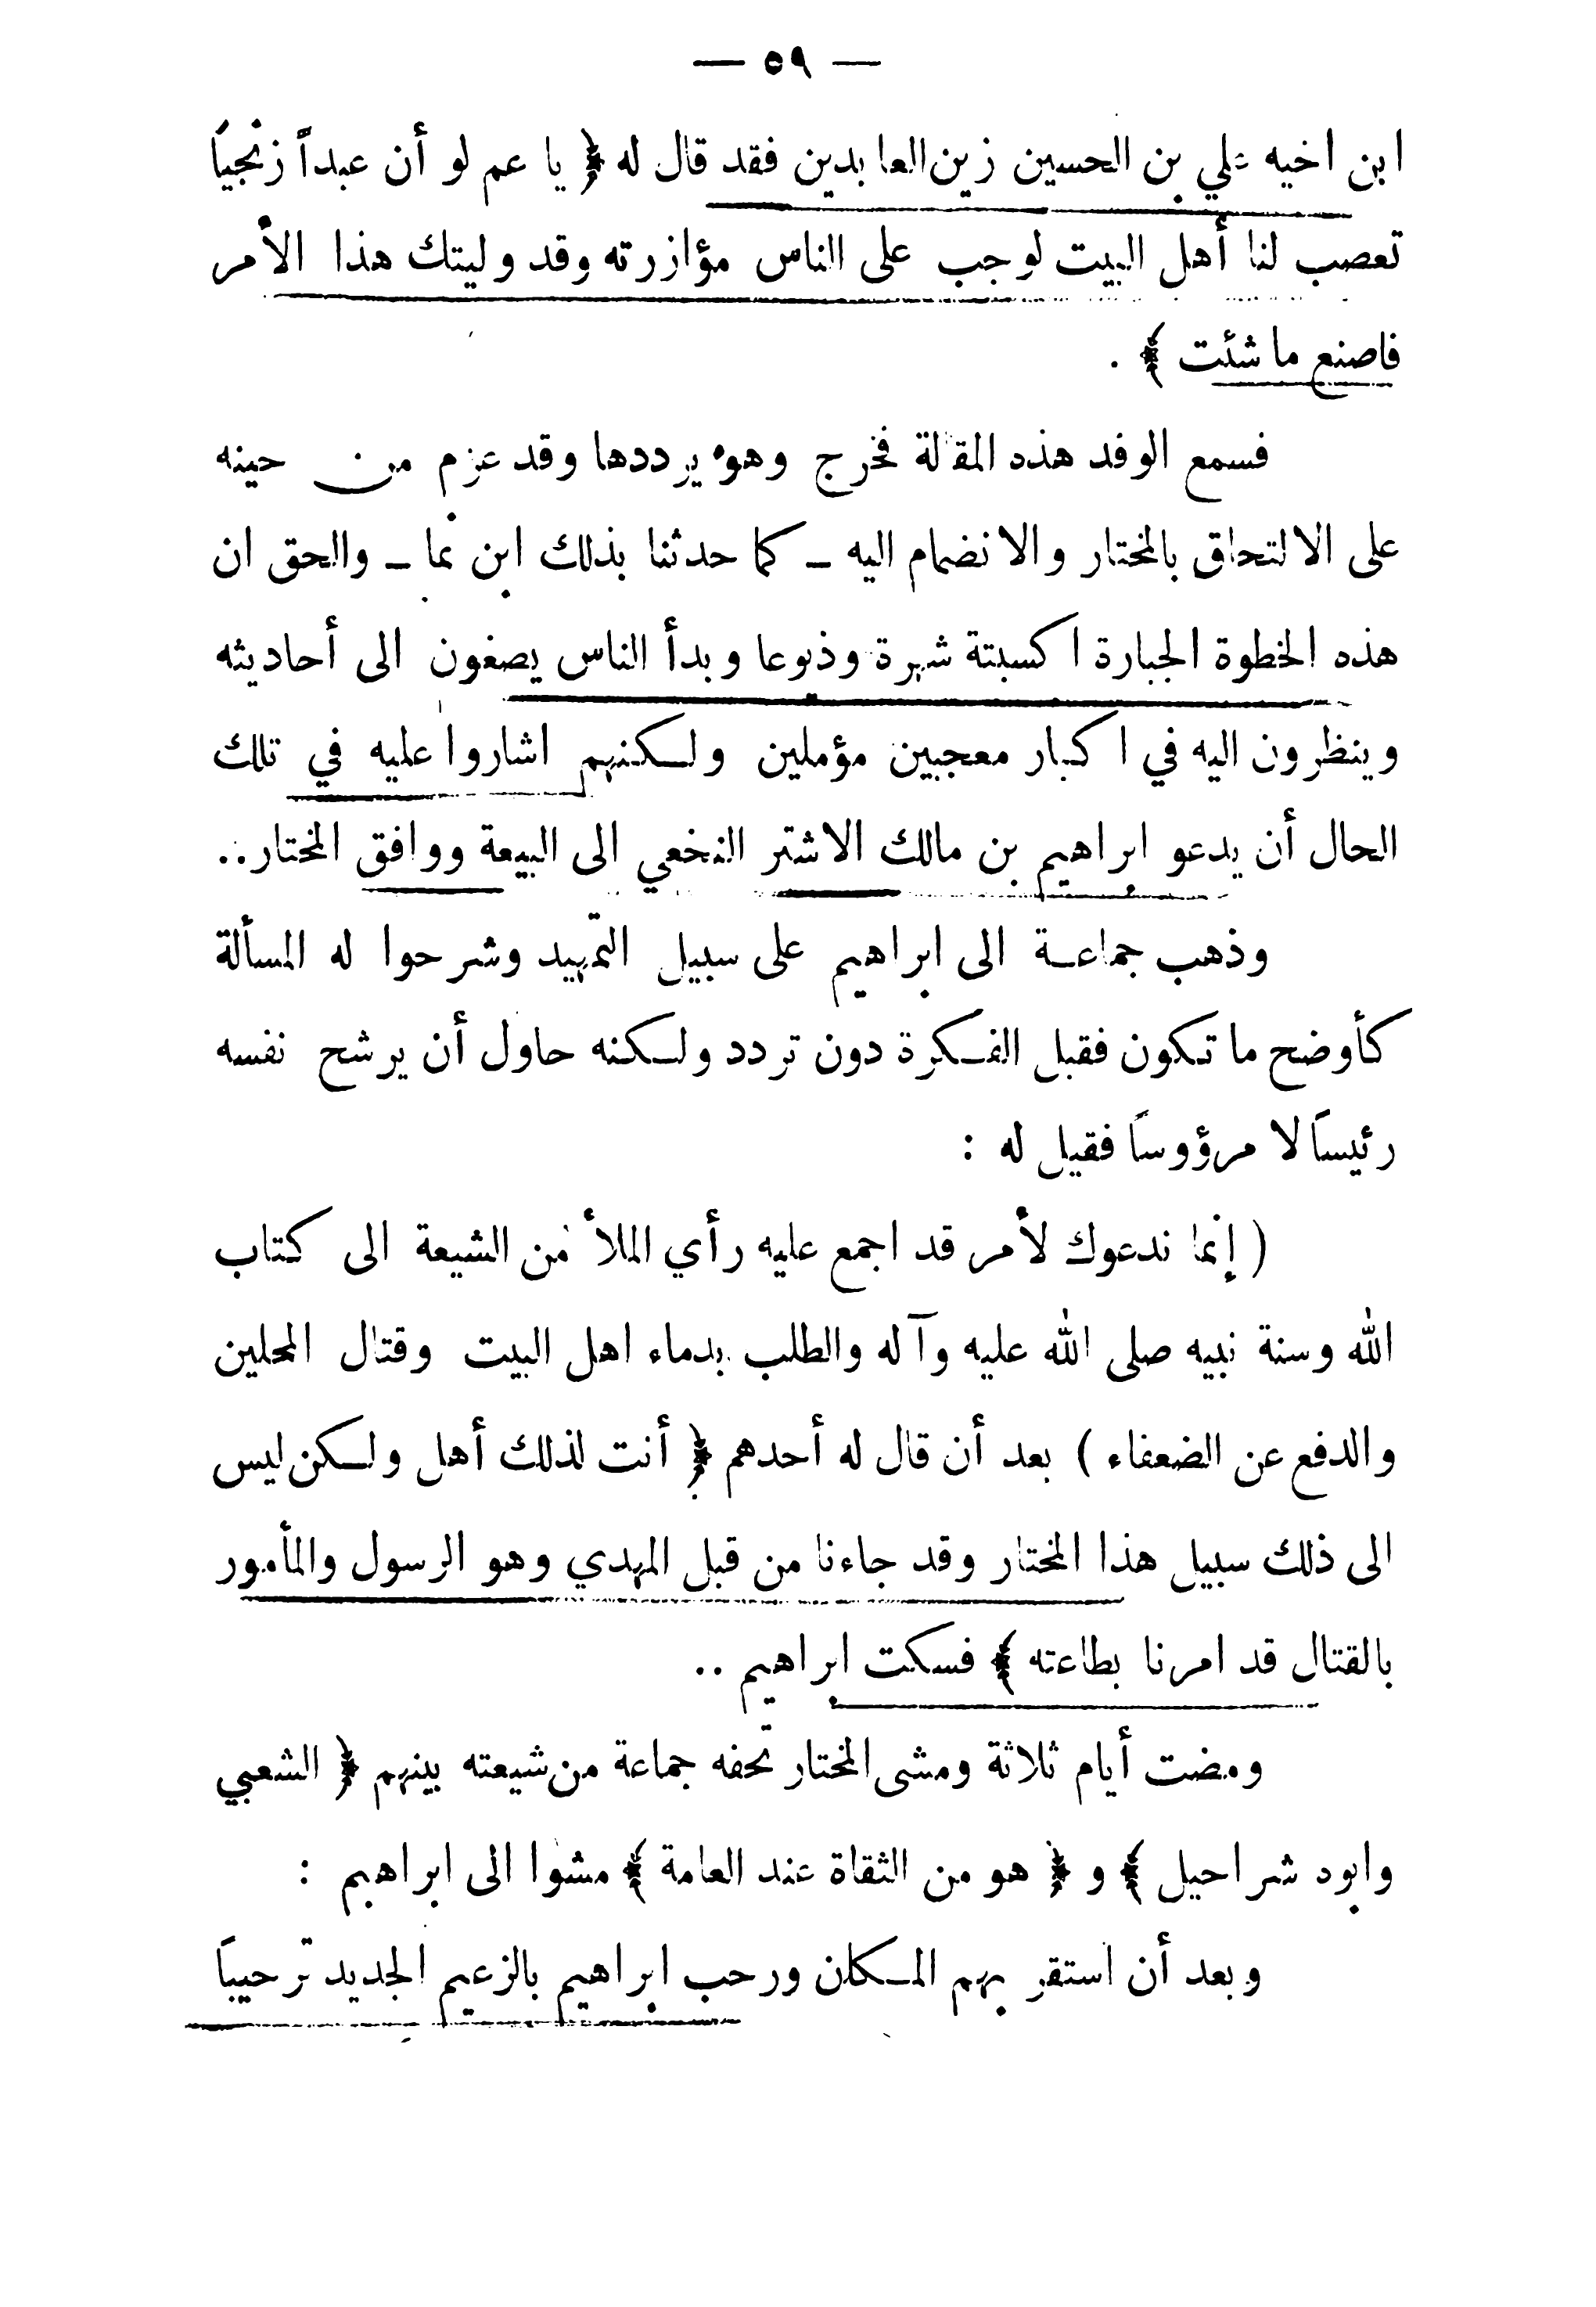 — ٥٩ —
ابن اخيه علي بن الحسين زين العابدين فقد قال له ﴿ يا عم لو أن عبداً زنجياً
تعصب لنا أهل البيت لوجب على الناس مؤازرته وقد وليتك هذا الأمر
فاصنع ما شئت ﴾ .
فسمع الوفد هذه المقالة فخرج وهو يرددها وقد عزم من حينه
على الالتحاق بالمختار والانضمام اليه ـ كما حدثنا بذلك ابن نما ـ والحق ان
هذه الخطوة الجبارة اكسبتة شهرة وذيوعا وبدأ الناس يصغون الى أحاديثه
وينظرون اليه في اكبار معجبين مؤملين ولكنهم اشاروا عليه في تلك
الحال أن يدعو ابراهيم بن مالك الاشتر النخعي الى البيعة ووافق المختار..
وذهب جماعة الى ابراهيم على سبيل التمهيد وشرحوا له المسألة
كأوضح ما تكون فقبل الفكرة دون تردد ولكنه حاول أن يرشح نفسه
رئيساً لا مرؤوساً فقيل له :
( إنما ندعوك لأمر قد اجمع عليه رأي الملأ من الشيعة الى كتاب
الله وسنة نبيه صلى الله عليه وآله والطلب بدماء اهل البيت وقتال المحلين
والدفع عن الضعفاء ) بعد أن قال له أحدهم ﴿ أنت لذلك أهل ولكن ليس
الى ذلك سبيل هذا المختار وقد جاءنا من قبل المهدي وهو الرسول والمأمور
بالقتال قد امرنا بطاعته ﴾ فسكت ابراهيم ..
ومضت أيام ثلاثة ومشى المختار تحفه جماعة من شيعته بينهم ﴿ الشعبي
وابود شراحيل ﴾ و ﴿ هو من الثقاة عند العامة ﴾ مشوا الى ابراهيم :
وبعد أن استقر بهم المكان ورحب ابراهيم بالزعيم الجديد ترحيباً